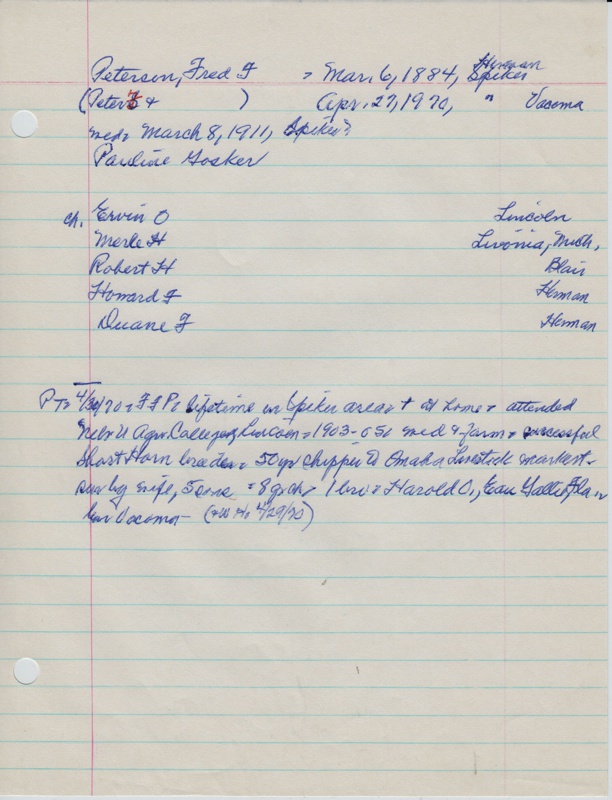 Herman
Peterson, Fred F = Mar. 6, 1884, Spiker
(Peter F & ) Apr. 27, 1970, " Tacoma
med= March 8, 1911, Spiker?
Pauline Gosker
ch. Ervin O Lincoln
Merle H Livonia, Mich,
Robert H Blair
Howard F Herman
Duane F Herman
PT= 4/30/70 = FFP= lifetime in Spiker area= + at home= attended
Nebr U Agri College, Lincoln = 1903-05= med & farm= successful
Short Horn breeder= 50 yr shipper to Omaha Livestock market-
sur by wife, 5 sons = 8 grch= 1 bro= Harold O., Eau Gallie Fla=
bur Tacoma- ( 4/29/70)